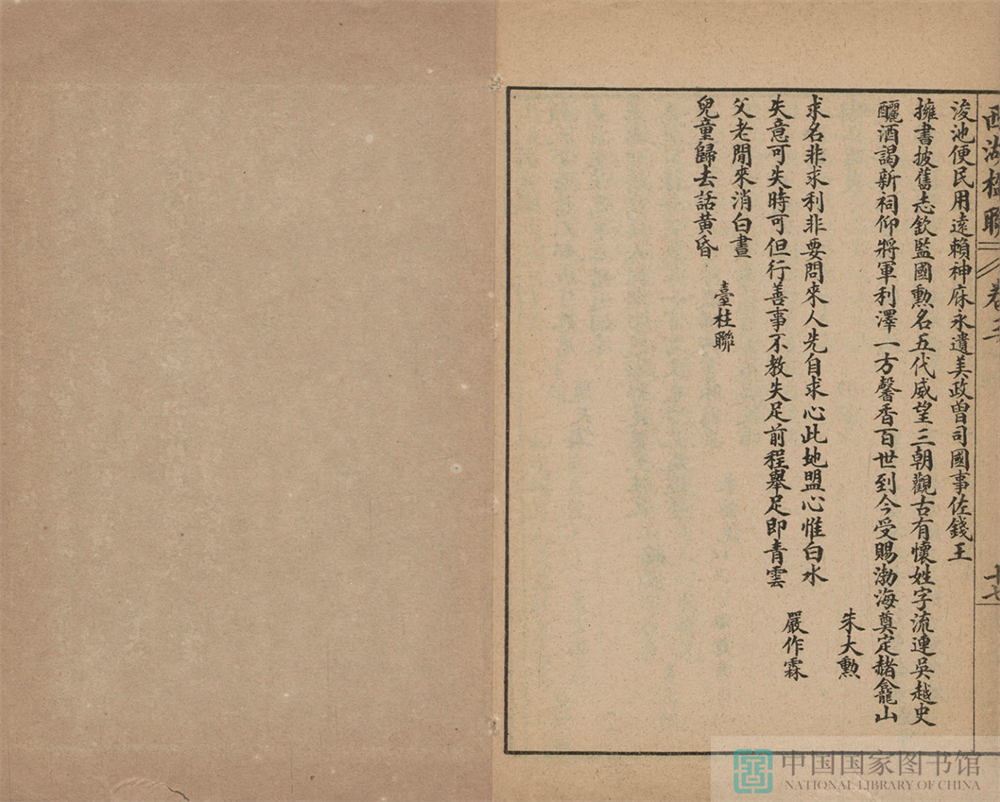 西湖楹聯 卷二 十七
浚池便民用遠賴神庥永遺美政曾司國事佐錢王
擁書披舊志欽監國勲名五代威望三朝觀古有懷姓字流連吳越史
釃酒謁新祠仰將軍利澤一方馨香百世到今受賜渤海奠定赭龕山
朱大勲
求名非求利非要問來人先自求心此地盟心惟白水
失意可失時可但行善事不教失足前程舉足即青雲
嚴作霖
父老閒來消白晝
兒童歸去話黃昏
臺柱聯
中国国家图书馆
NATIONAL LIBRARY OF CHINA